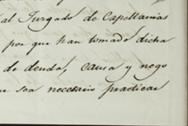 al Juzgado de Capellanias
por que han tomado dicha
de deuda, causa y nego
ue sea necesario practicar